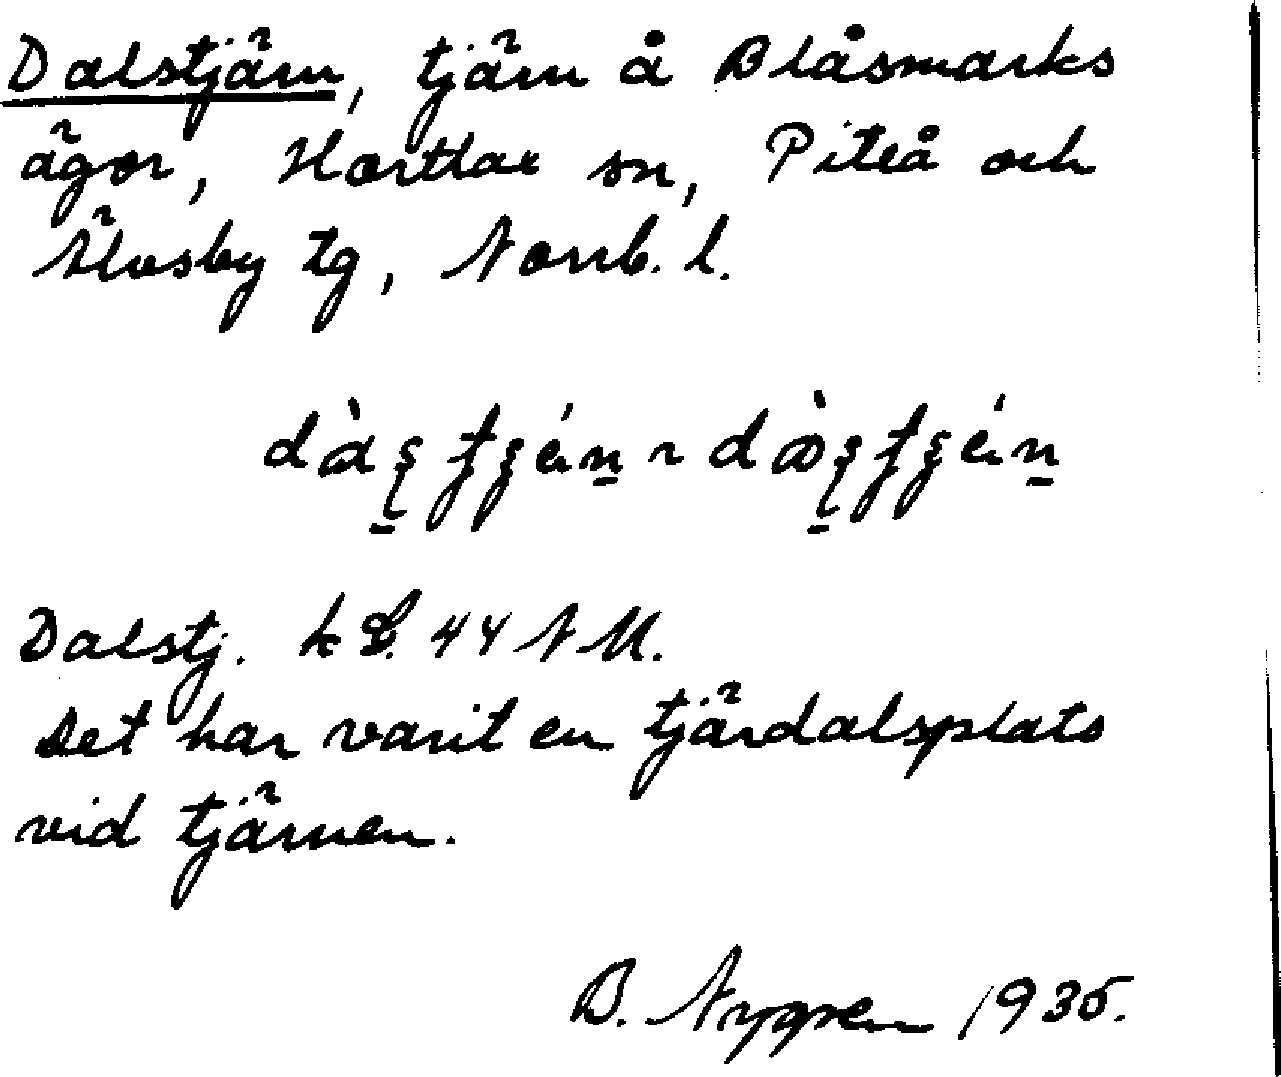 Dalstjärn, tjärn å Blåsmarks
ägor, Hortlax sn, Piteå och
Älvsby tg, Norrb. l.
Dalstj. k Bl. 44 NM.
Det har varit en tjärdalsplats
vid tjärnen.
B. Nygren 1935.